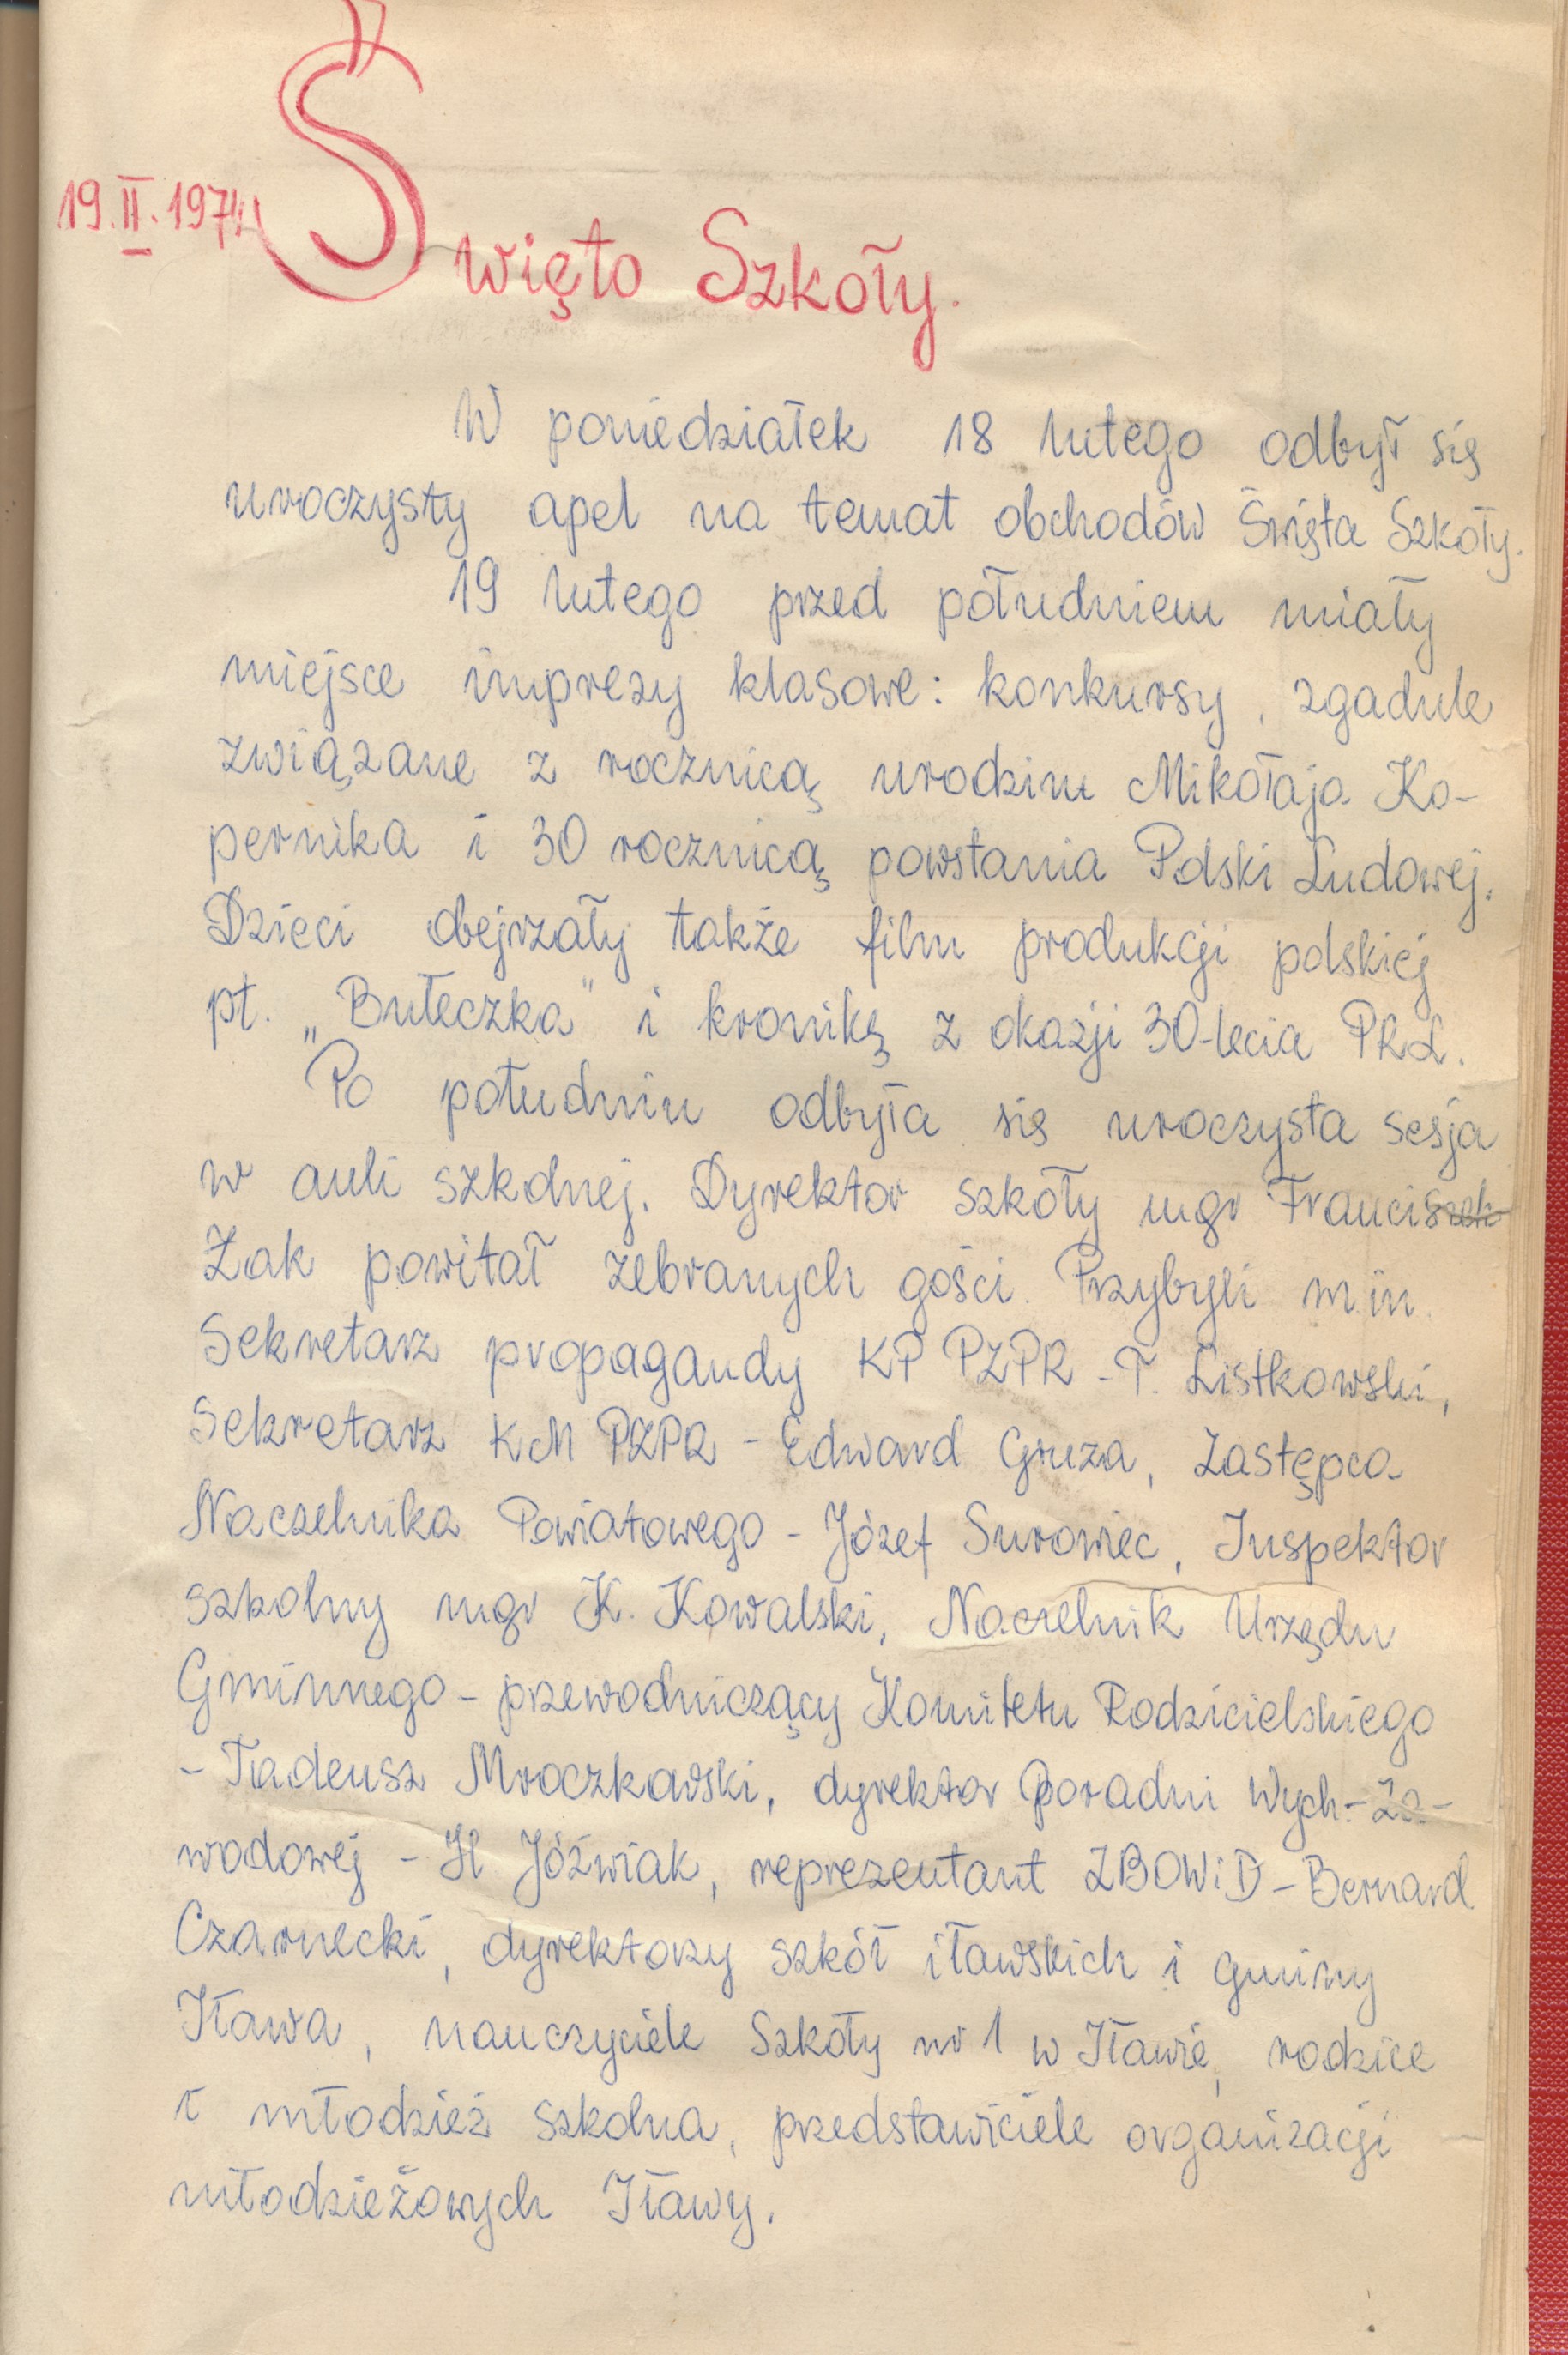 19.II.1974
Święto Szkoły.
W poniedziałek 18 lutego odbył się
uroczysty apel na temat obchodów Święta Szkoły.
19 lutego przed południem miały
miejsce imprezy klasowe: konkursy, zgadule
związane z rocznicą urodzin Mikołaja Ko-
pernika i 30 rocznicą powstania Polski Ludowej.
Dzieci obejrzały także film produkcji polskiej
pt. „Bułeczka" i kronikę z okazji 30-lecia PRL.
Po południu odbyła się uroczysta sesja
w auli szkolnej. Dyrektor szkoły mgr Franciszek
Żak powitał zebranych gości. Przybyli m.in.
Sekretarz propagandy KP PZPR - T. Listkowski,
Sekretarz KM PZPR - Edward Gruza, Zastępca
Naczelnika Powiatowego - Józef Surowiec, Inspektor
szkolny mgr K. Kowalski, Naczelnik Urzędu
Gminnego - przewodniczący Komitetu Rodzicielskiego
- Tadeusz Mroczkowski, dyrektor Poradni Wych.-Za-
wodowej - H Jóźwiak, reprezentant ZBOWiD - Bernard
Czarnecki, dyrektorzy szkół iławskich i gminy
Iława, nauczyciele Szkoły nr 1 w Iławie, rodzice
i młodzież szkolna, przedstawiciele organizacji
młodzieżowych Iławy.